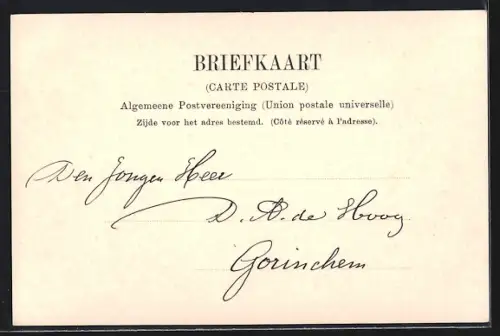 BRIEFKAART
(CARTE POSTALE)
Algemeene Postvereeniging (Union postale universelle)
Zijde voor het adres bestemd. (Côté réservé à l'adresse).
Den Jongen Heer
D. A. de Hoog
Gorinchem